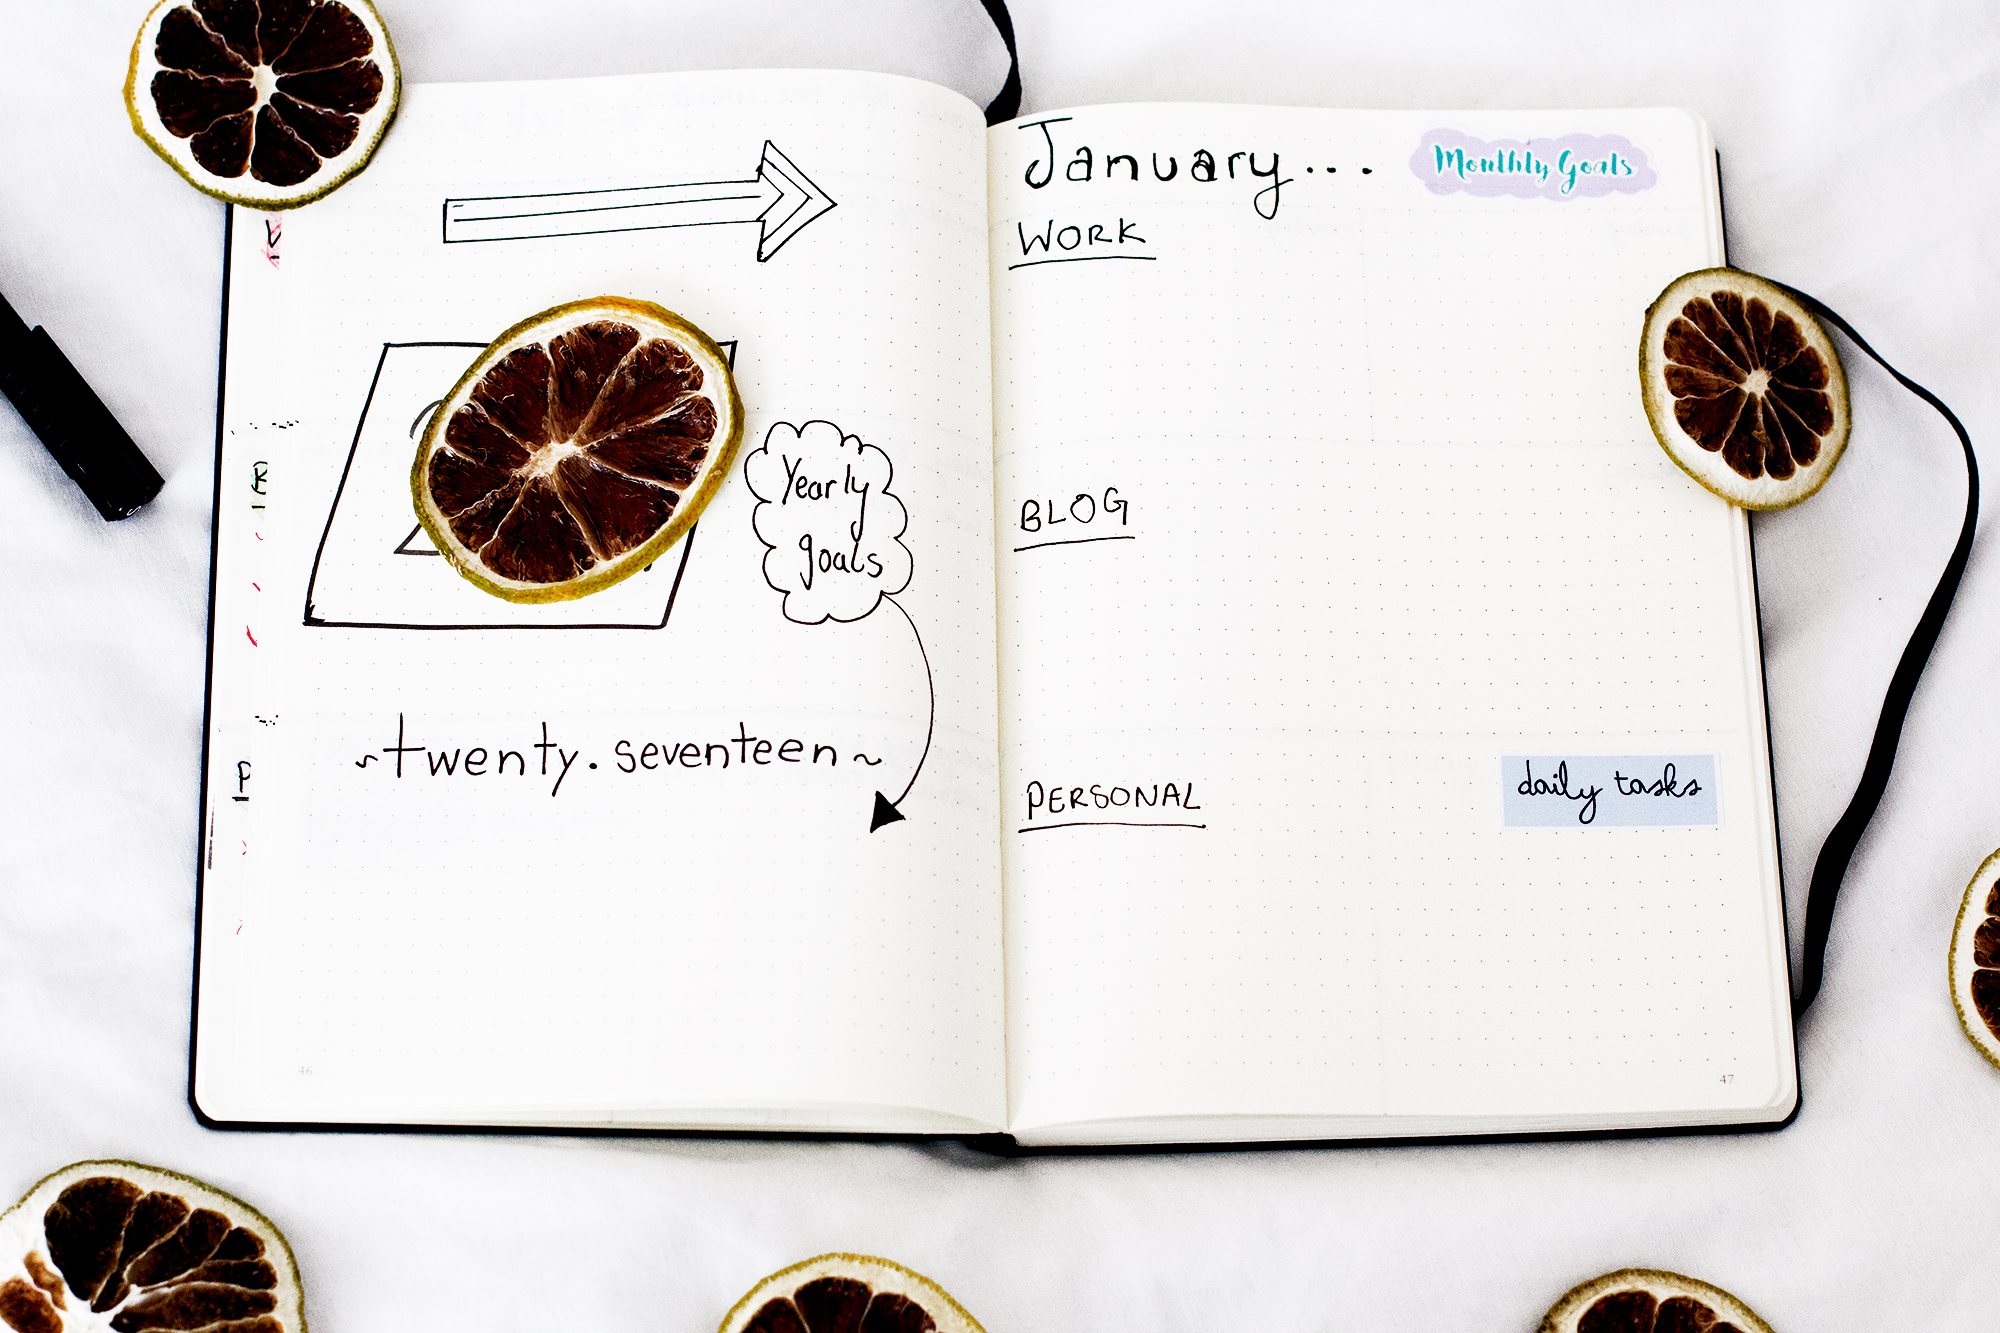 Yearly
goals
~twenty.seventeen~
46
January...
Monthly Goals
WORK
BLOG
PERSONAL
daily tasks
47